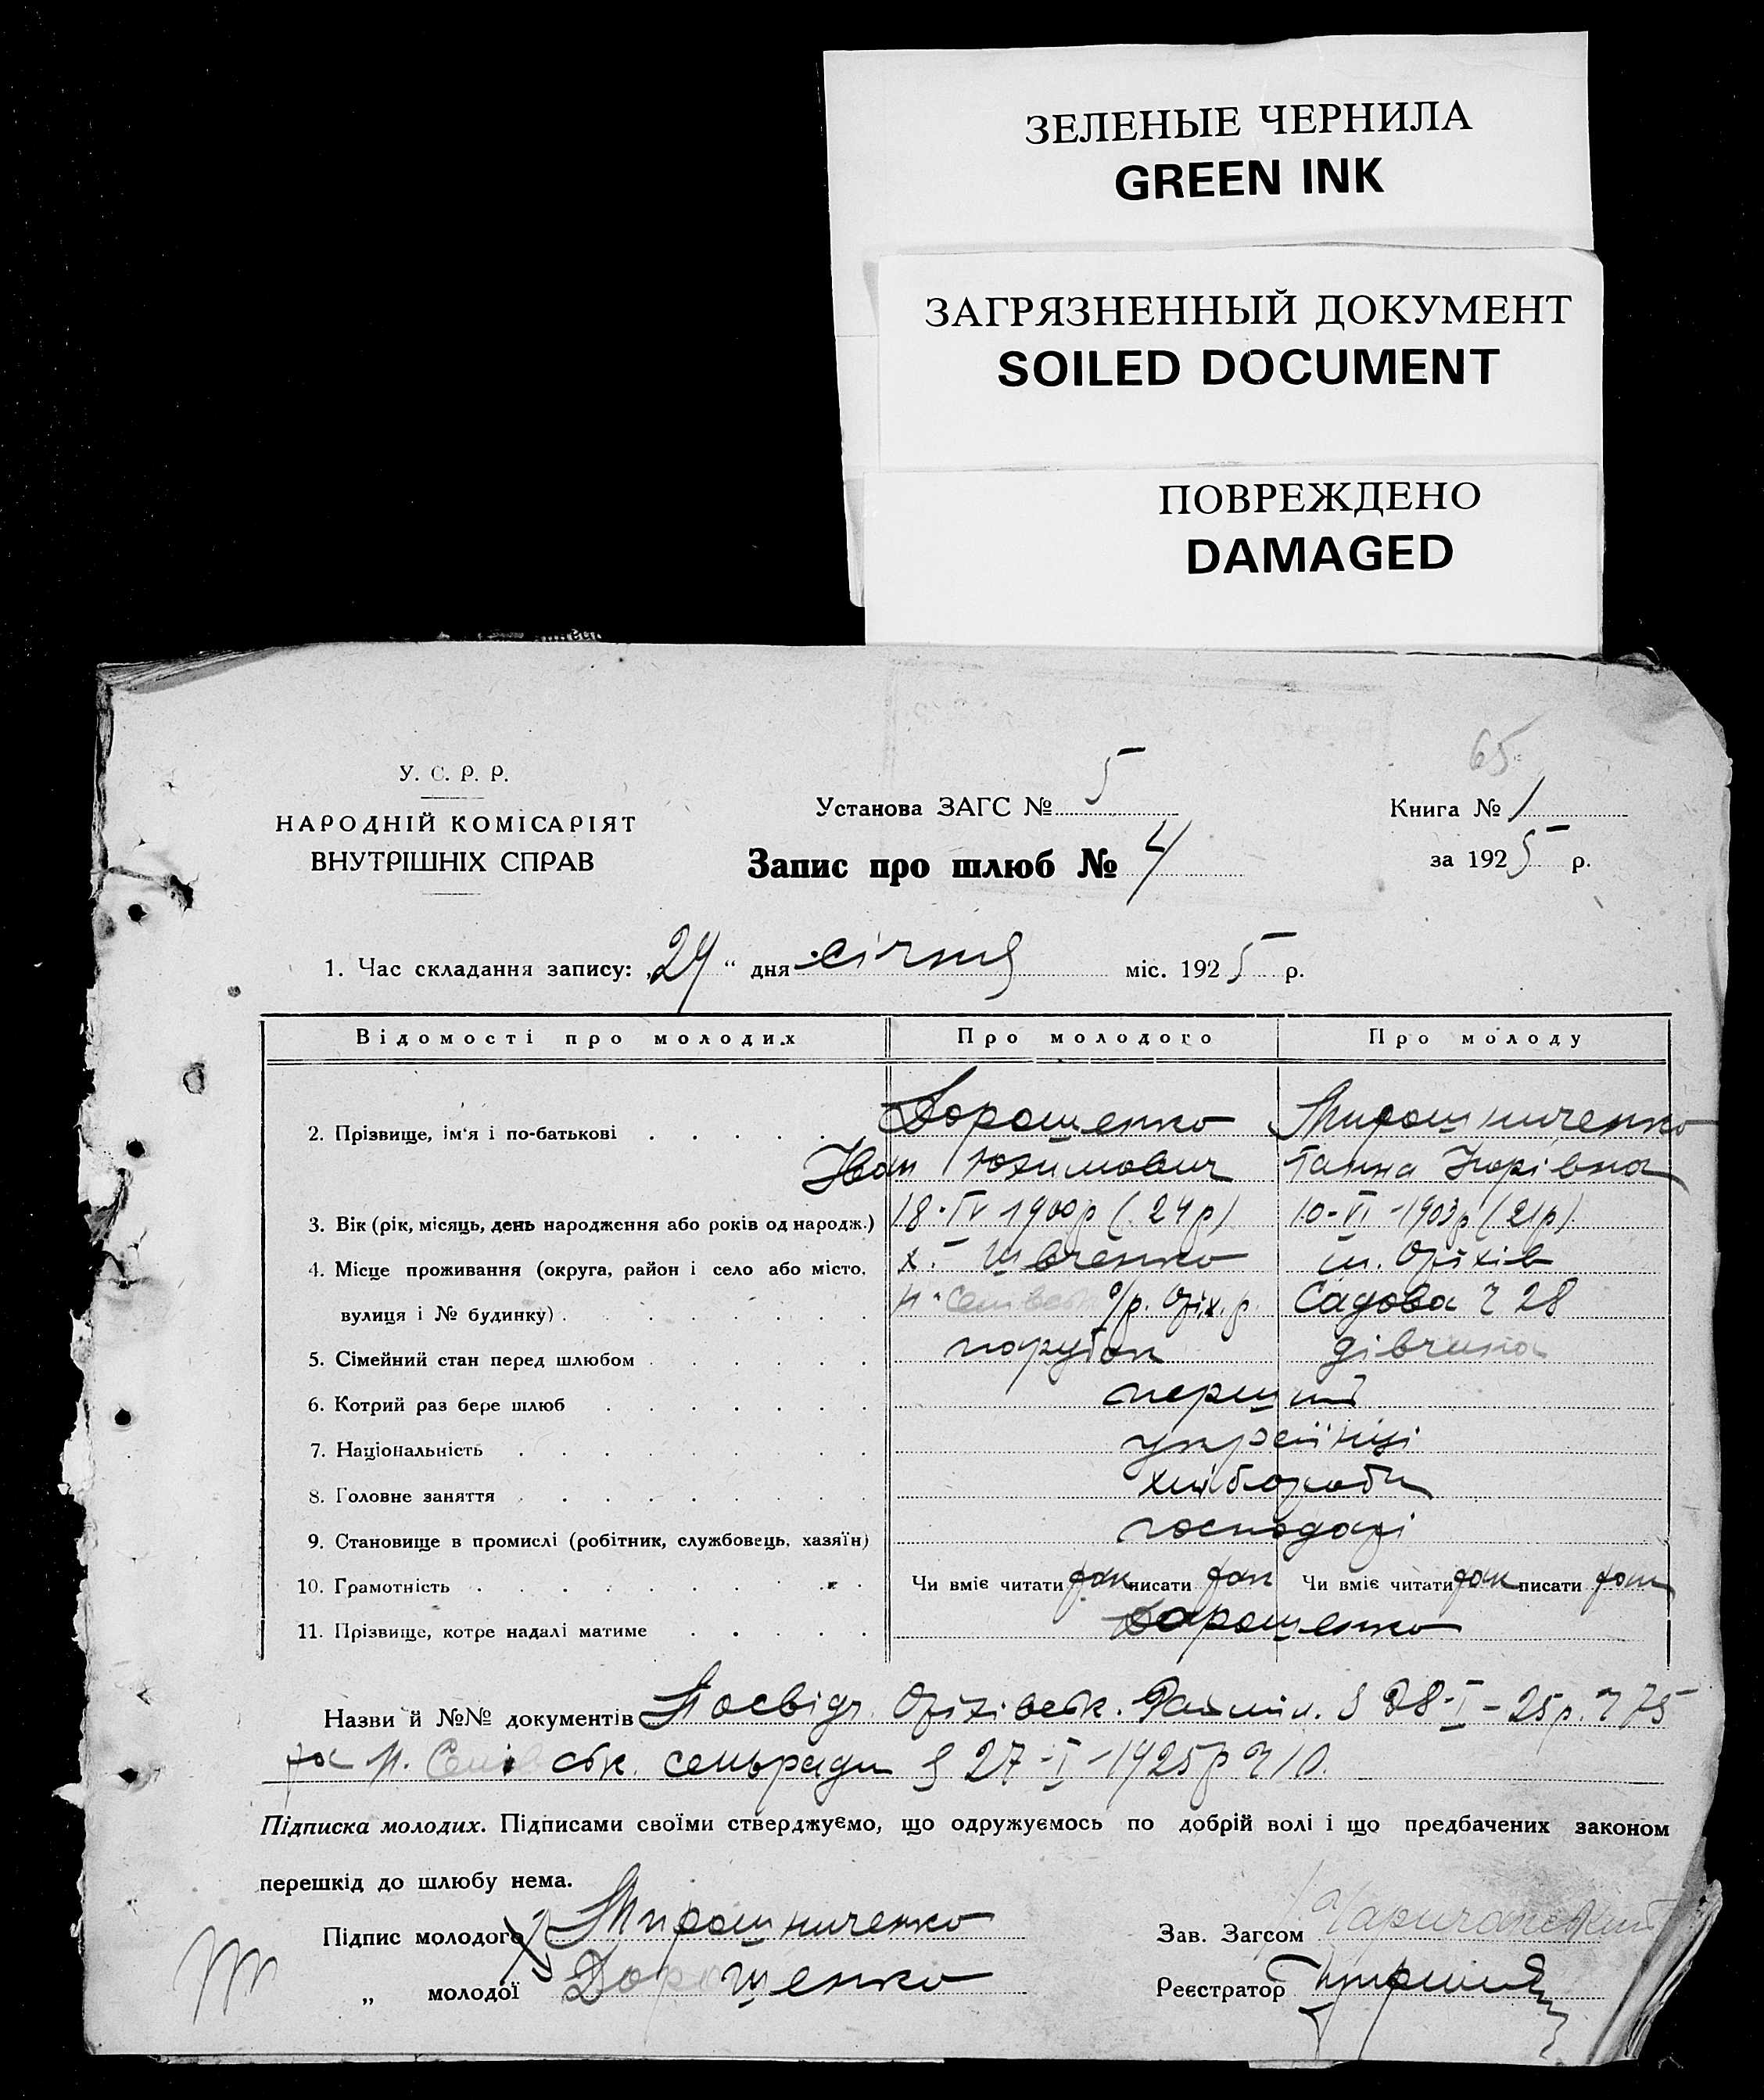 ЗЕЛЕНЫЕ ЧЕРНИЛА
GREEN INK
ЗАГРЯЗНЕННЫЙ ДОКУМЕНТ
SOILED DOCUMENT
ПОВРЕЖДЕНО
DAMAGED
65
У. С. Р. Р.
НАРОДНІЙ КОМІСАРІЯТ
ВНУТРІШНІХ СПРАВ
Установа ЗАГС № 5
Запис про шлюб № 4
Книга № 1
за 1925 р.
1. Час складання запису: „29“ дня січня міс. 1925 р.
Відомості про молодих Про молодого Про молоду
2. Прізвище, ім'я і по-батькові Дорошенко Мирошниченко
Іван Юхимович Ганна Ігорівна
3. Вік (рік, місяць, день народження або років од народж.) 18-IV 1900р (24р) 10-VI-1903р (21р)
4. Місце проживання (округа, район і село або місто, х. Шевченко м. Оріхів
вулиця і № будинку) с/р. Оріх. р. Садова ч 28
5. Сімейний стан перед шлюбом парубок дівчина
6. Котрий раз бере шлюб перший
7. Національність українці
8. Головне заняття хлібороби
9. Становище в промислі (робітник, службовець, хазяїн) господарі
10. Грамотність Чи вміє читати так писати так Чи вміє читати так писати так
11. Прізвище, котре надалі матиме Дорошенко
Назви й №№ документів Посвідч. Оріхівськ. Райміл. з 28-I-25р. ч 75
та сільради з 27-I-1925р ч 10.
Підписка молодих. Підписами своїми стверджуємо, що одружуємось по добрій волі і що предбачених законом
перешкід до шлюбу нема.
Підпис молодого Мирошниченко
„ молодої Дорошенко
Зав. Загсом
Реєстратор